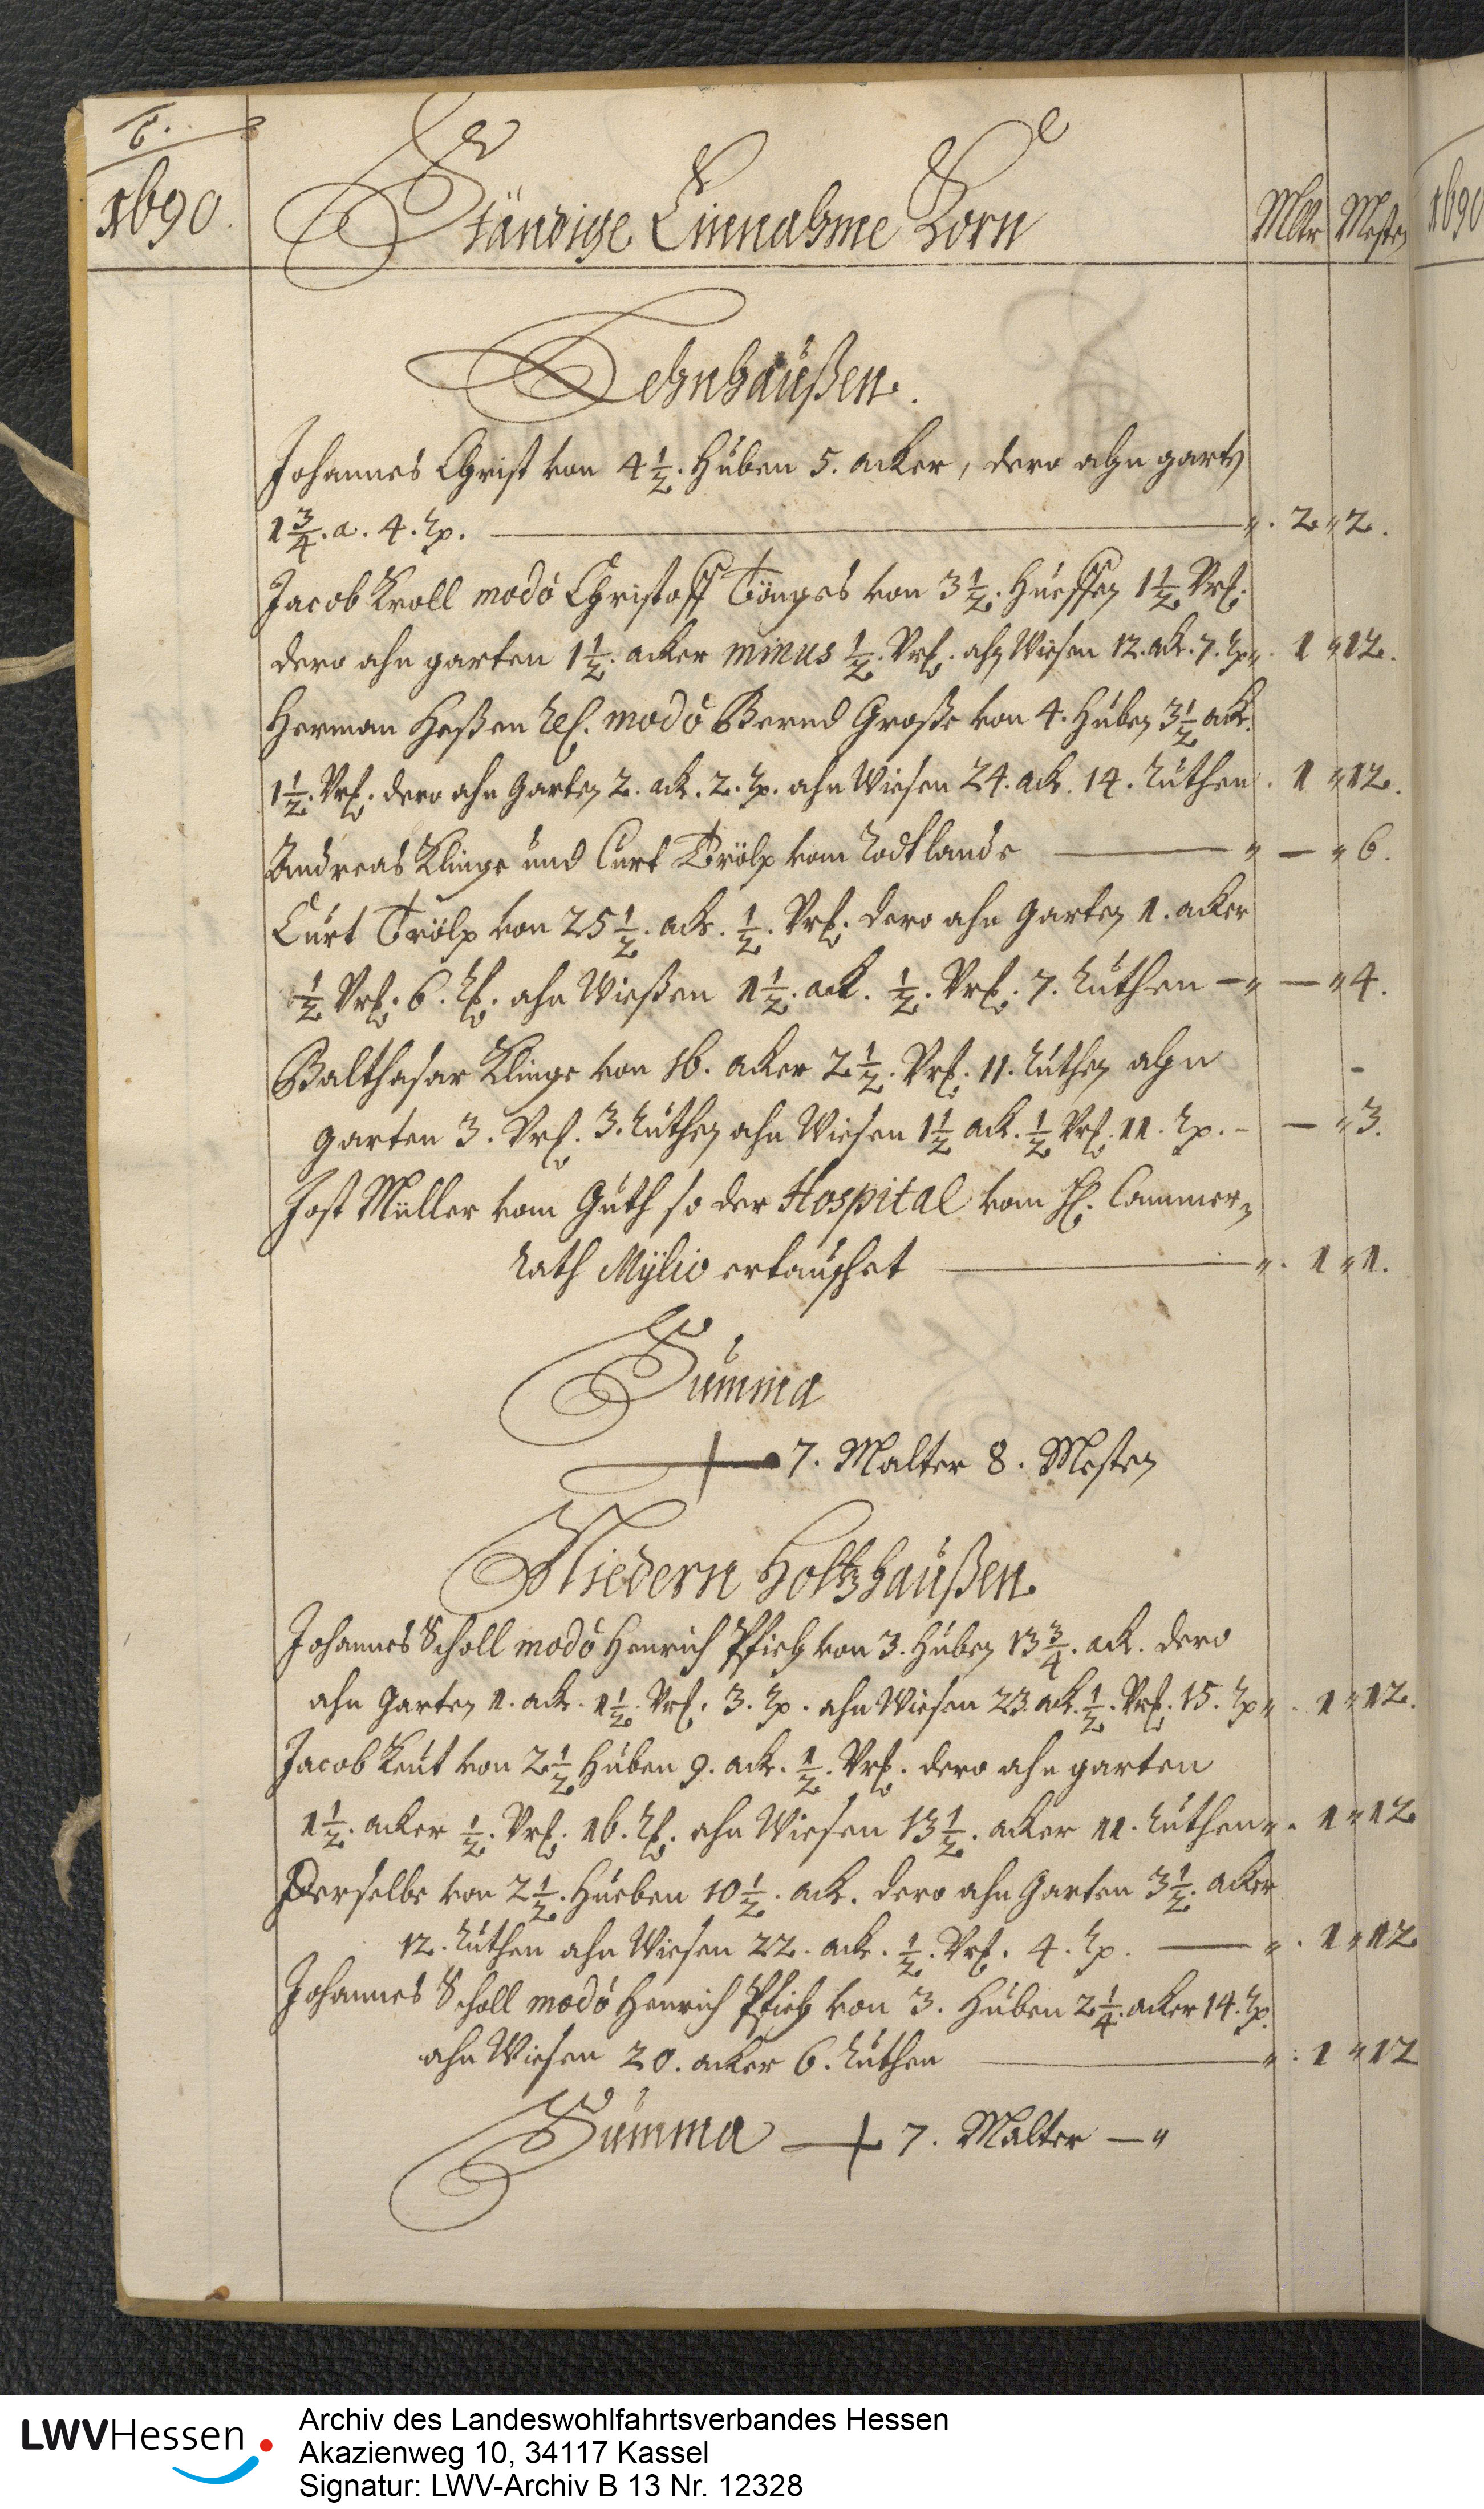 6.
1690.
Ständige Einnahme Korn
Mltr Mesten
1690
Lehnhaußen.
Johannes Christ von 4 1/2. Huben 5. acker, dero ahn garten
1 3/4. a. 4. rt. ". 2 " 2.
Jacob Kroll modo Christoff Tönges von 3 1/2. Hueffen 1 1/2 Vrt.
dero ahn garten 1 1/2. acker minus 1/2. Vrt. ahn Wiesen 12. ack. 7. rt. ". 1 " 12.
Herman Heßen rel. modo Bernd Große von 4. Huben 3 1/2 ack.
1 1/2. Vrt. dero ahn Garten 2. ack. 2. rt. ahn Wiesen 24. ack. 14. Ruthen . 1 " 12.
Andreas Klinge und Curt Trölp vom Rodtlande " — " 6.
Curt Trölp von 25 1/2. ack. 1/2. Vrt. dero ahn Garten 1. acker
1/2 Vrt. 6. rt. ahn Wießen 1 1/2. ack. 1/2. Vrt. 7. Ruthen — " — " 4.
Balthasar Klinge von 16. acker 2 1/2. Vrt. 11. Ruthen ahn
garten 3. Vrt. 3. Ruthen ahn Wiesen 1 1/2 ack. 1/2 Vrt. 11. rt. - — " 3.
Jost Müller vom Guth so der Hospital vom H. Cammer
Rath Mÿlio ertauschet ". 1 " 1.
Summa
7. Malter 8. Mesten
Niedern Holtzhaußen
Johannes Scholl modo Henrich Pfietz von 3. Huben 13 3/4. ack. dero
ahn Garten 1. ack. 1 1/2. Vrt. 3. rt. ahn Wiesen 23. ack. 1/2. Vrt. 15. rt ". 1 " 12.
Jacob Keut von 2 1/2 Huben 9. ack. 1/2. Vrt. dero ahn garten
1 1/2. acker 1/2. Vrt. 16. rt. ahn Wiesen 13 1/2. acker 11. Ruthen ". 1 " 12
Derselbe von 2 1/2. Hueben 10 1/2. ack. dero ahn Garten 3 1/2. acker
12. Ruthen ahn Wiesen 22. ack. 1/2. Vrt. 4. rt. ". 1 " 12
Johannes Scholl modo Henrich Pfietz von 3. Huben 2 1/4. acker 14. rt.
ahn Wiesen 20. acker 6. Ruthen ". 1 " 12
Summa 7. Malter — "
LWVHessen
Archiv des Landeswohlfahrtsverbandes Hessen
Akazienweg 10, 34117 Kassel
Signatur: LWV-Archiv B 13 Nr. 12328